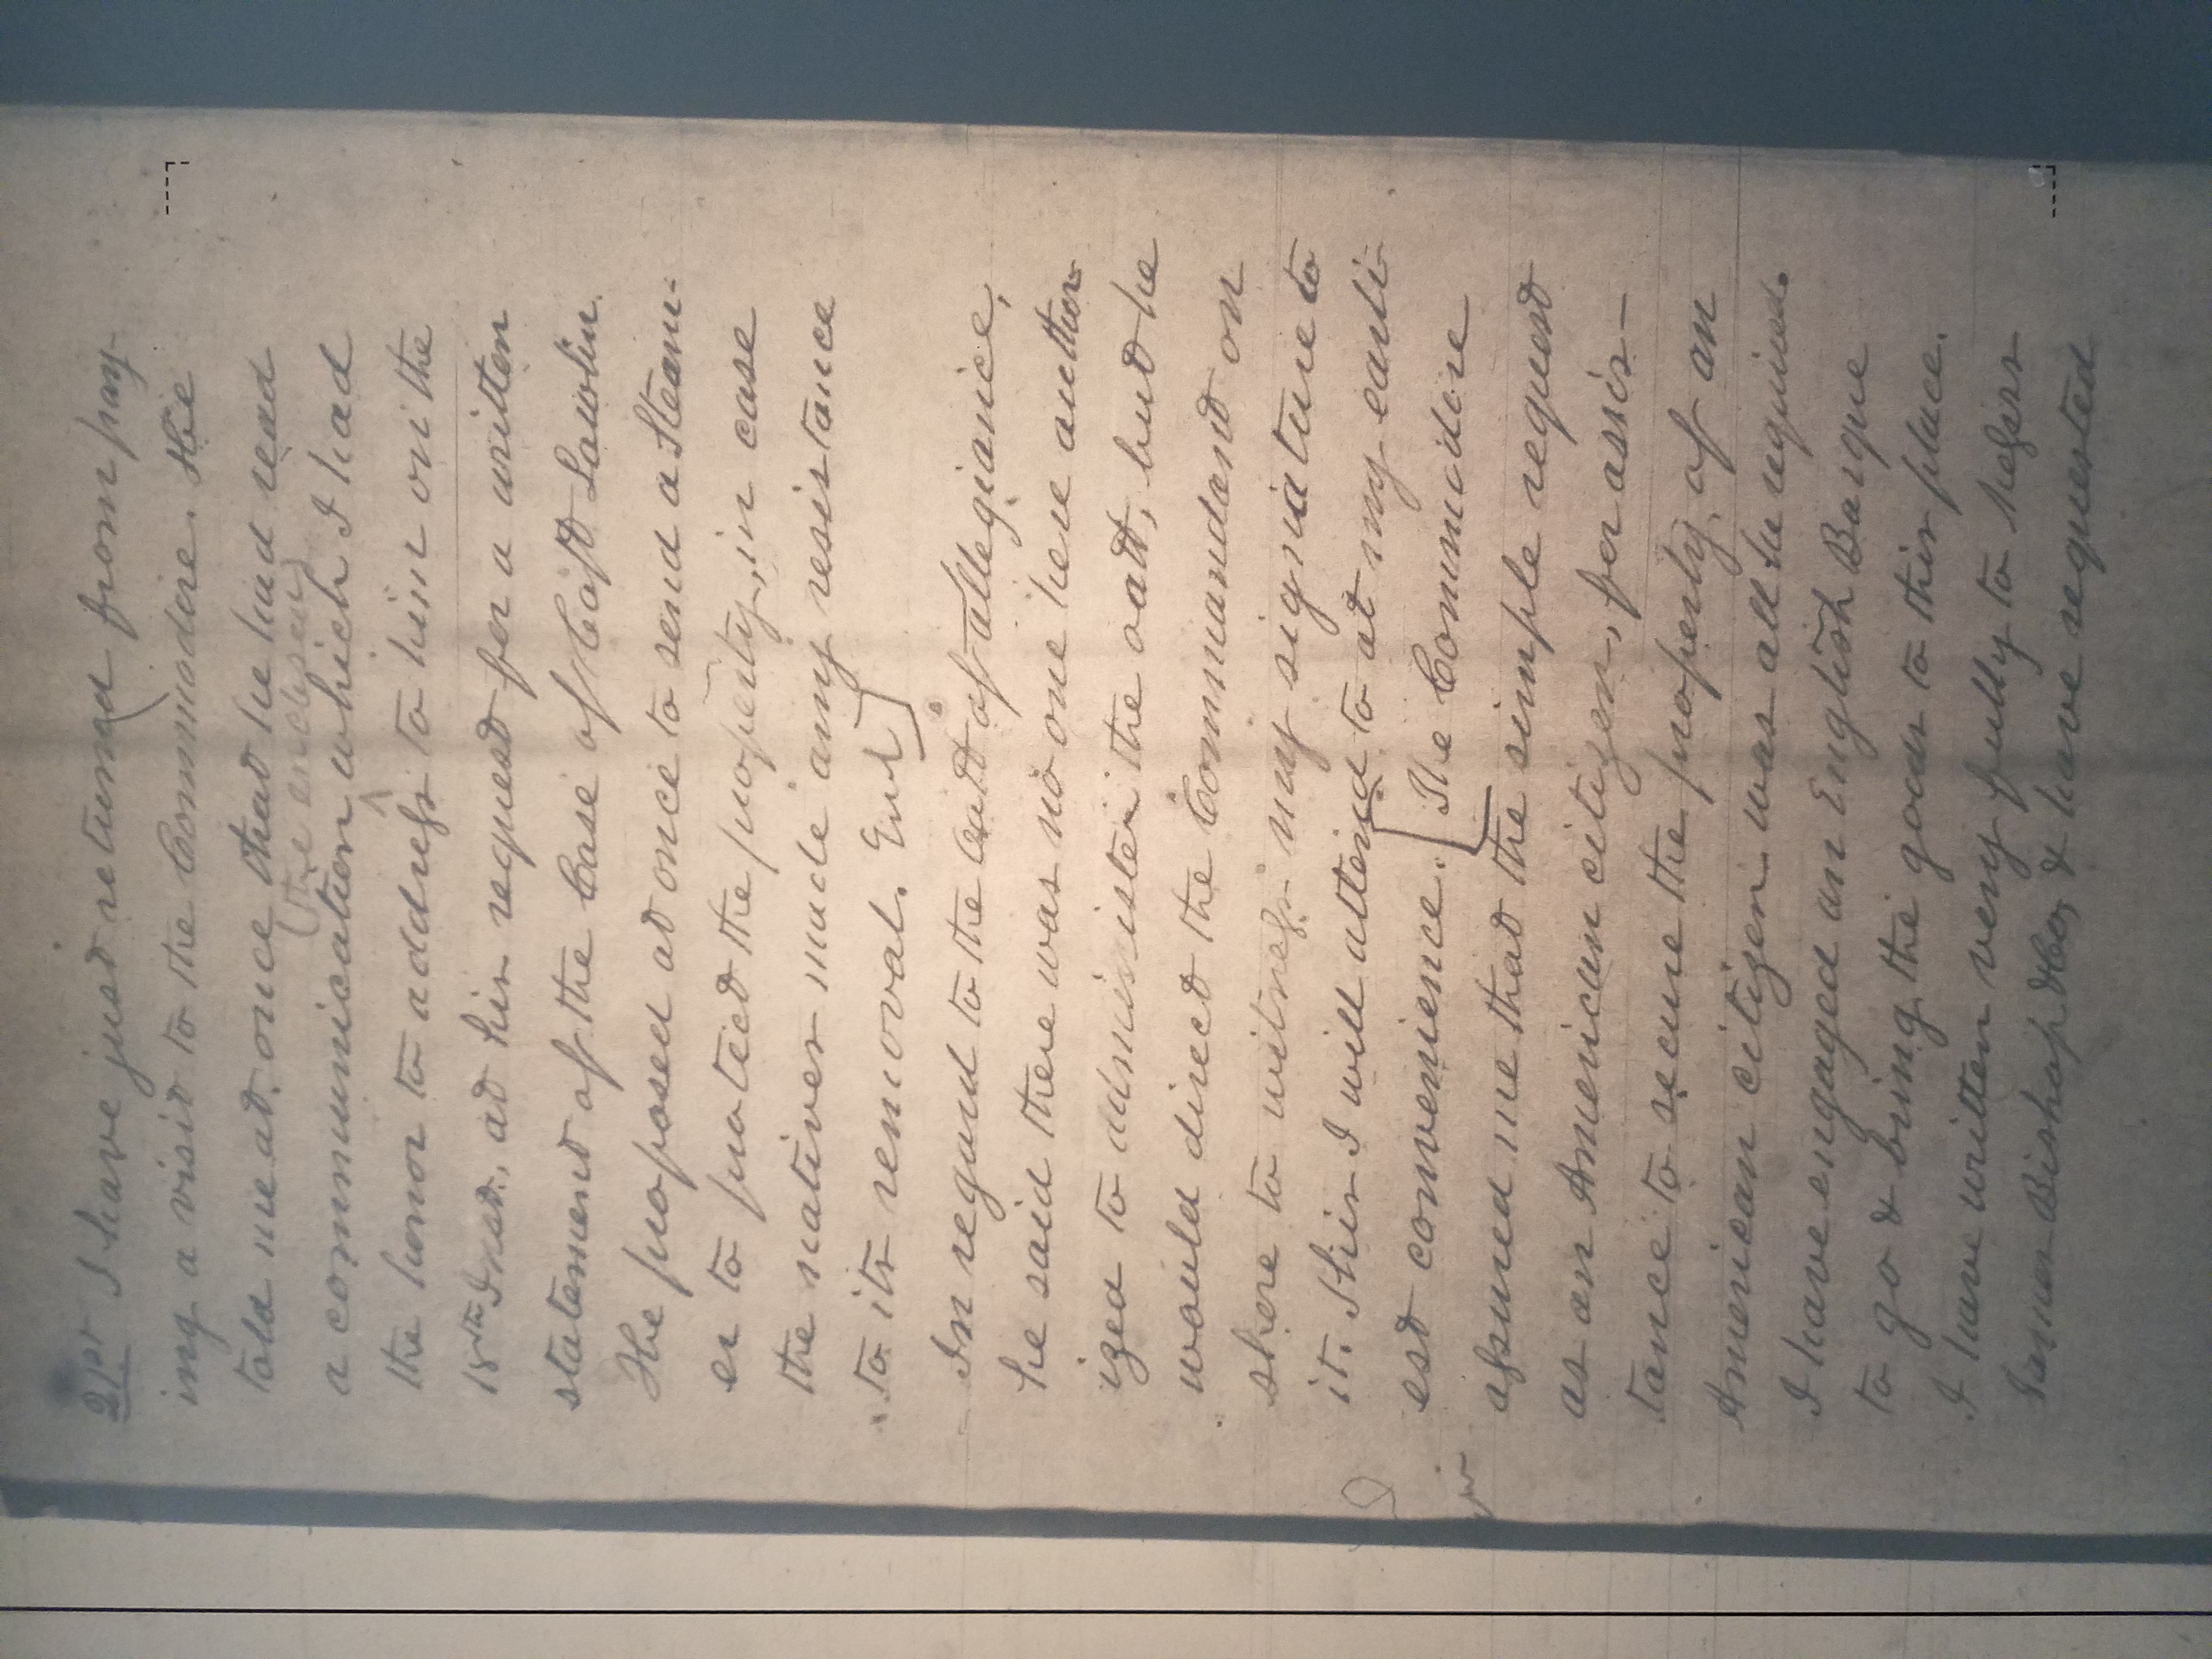 21st I have just returned from pay-
ing a visit to the Commodore. He
told me at once that he had read
(the enclosed)
a communication which I had
the honor to address to him on the
18th Inst., at his request for a written
statement of the Case of Capt Lawlin.
He proposed at once to send a Steam-
er to protect the property, in case
the natives made any resistance
to its removal. End]
In regard to the Oath of allegiance,
he said there was no one here author-
ized to administer the oath, but he
would direct the Commandant on
shore to witness my signature to
it. This I will attend to at my earli-
est convenience. [The Commodore
assured me that the simple request
as an American citizen, for assis-
tance to secure the property of an
American citizen was all he required.
I have engaged an English Barque
to go & bring the goods to this place.
I have written very fully to Messrs
James Bishop & Co, & have requested